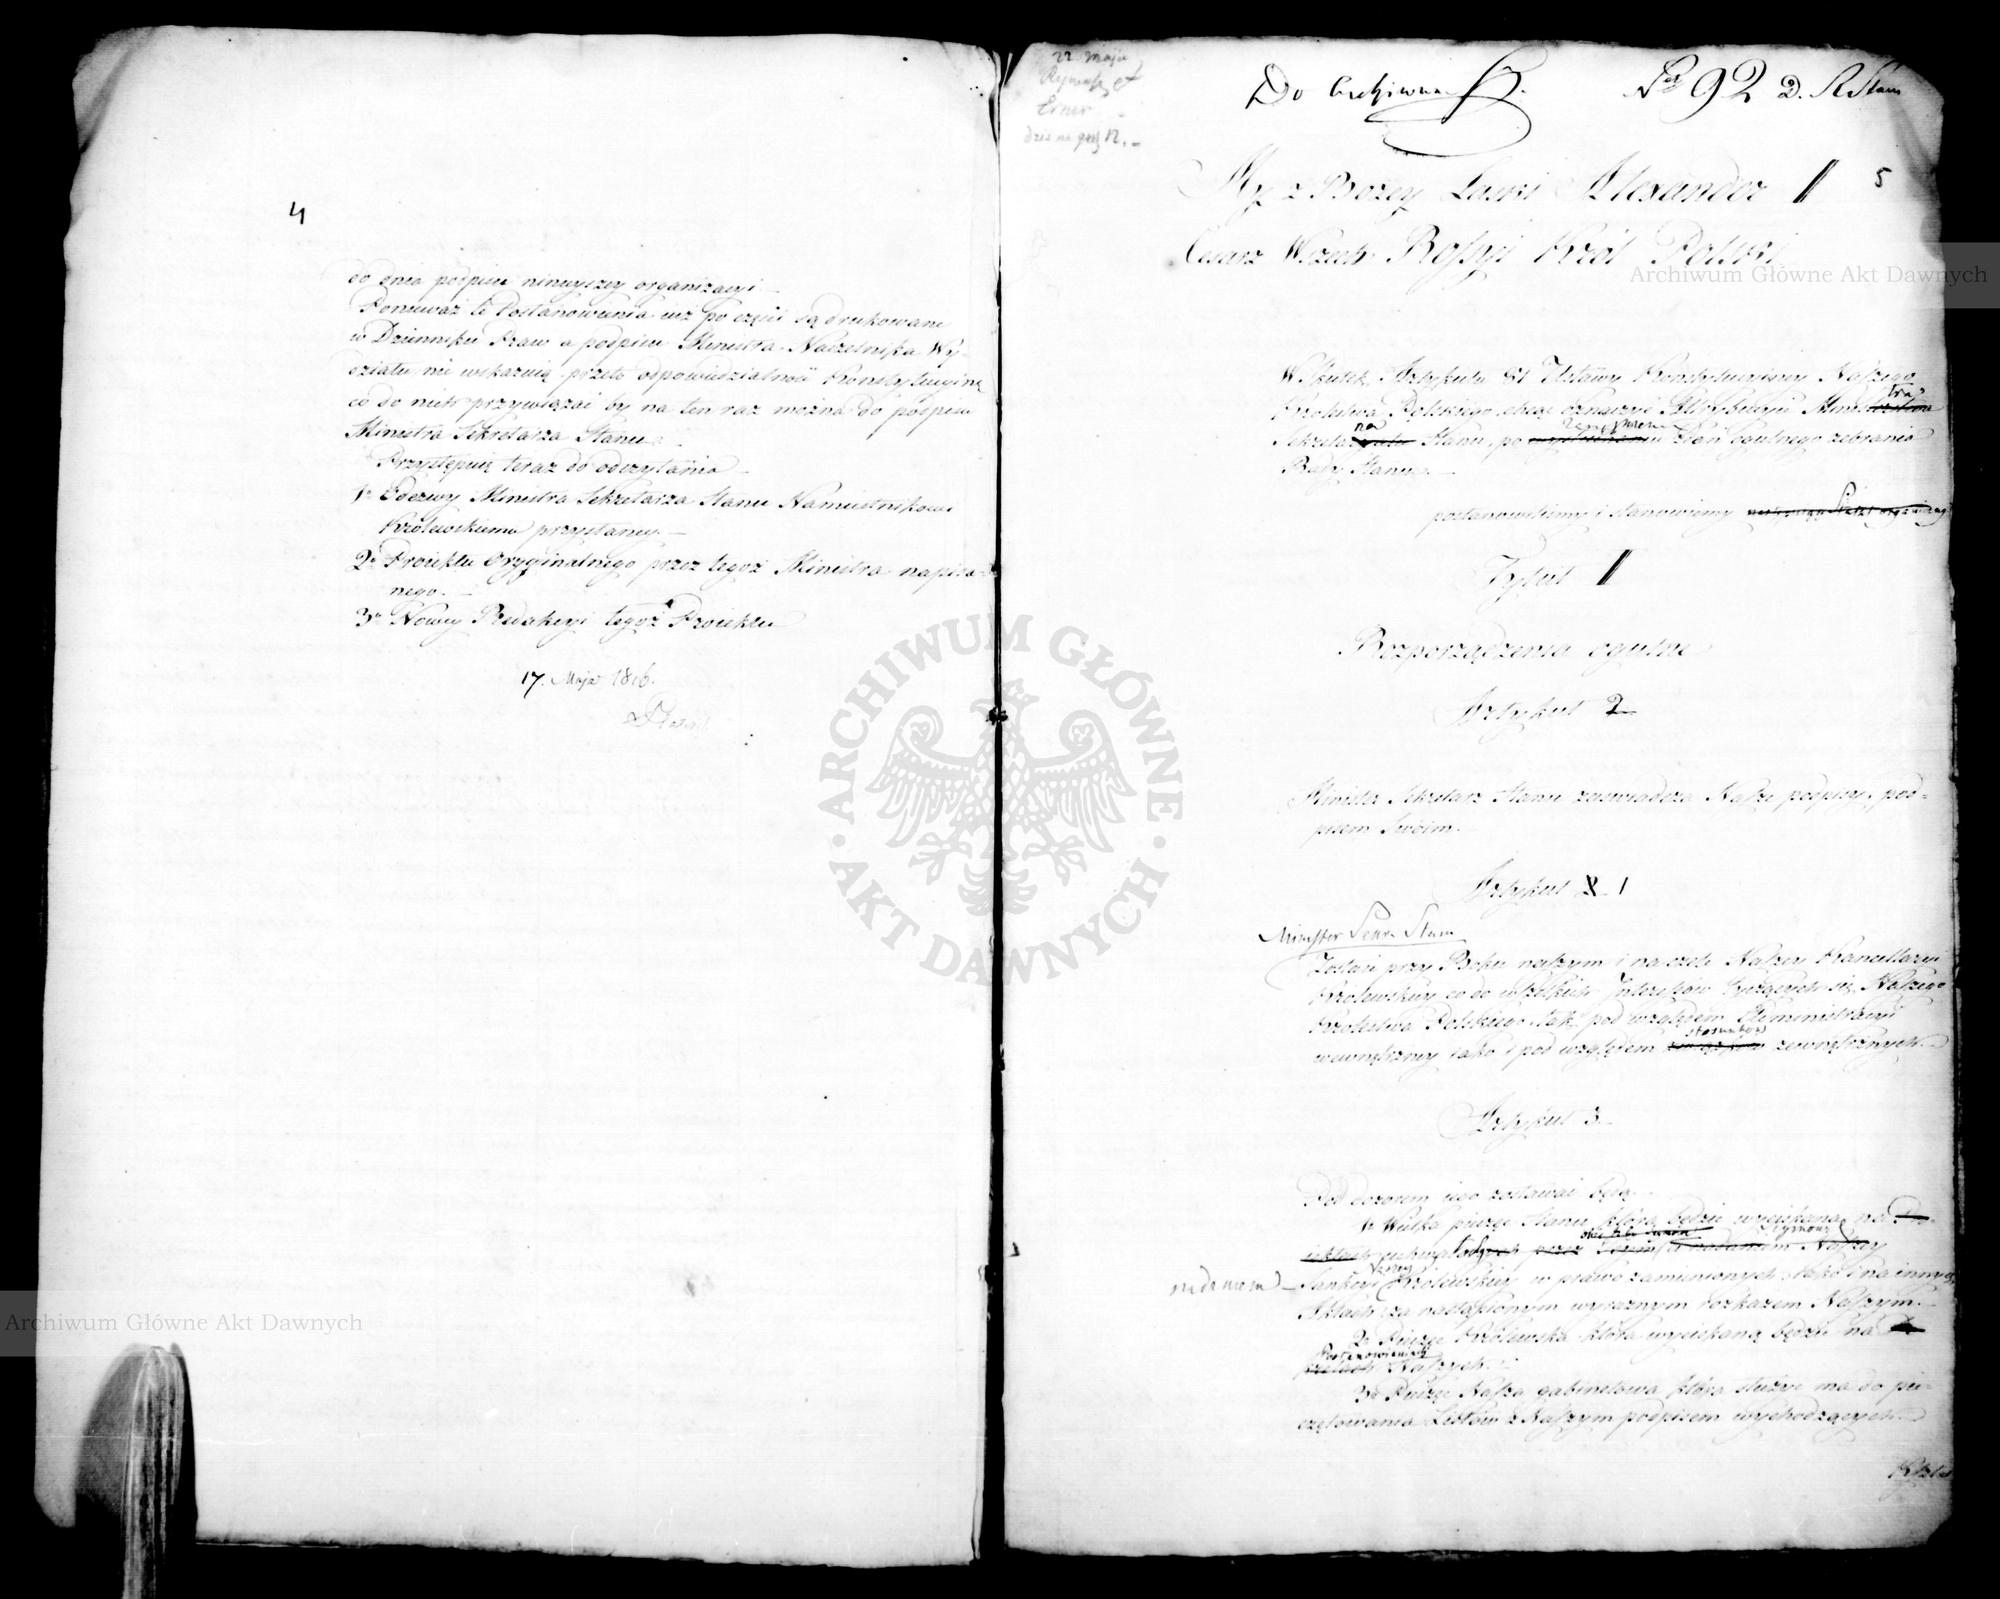 4
do dnia podpisu ninieyszey organizacyi.
Ponieważ te Postanowienia iuż po części są drukowane
w Dzienniku Praw a podpisu Ministra Naczelnika Wy-
działu nie wskazuią przeto odpowiedzialność Konstytucyiną
co do nich przywiązać by na ten raz można do podpisu
Ministra Sekretarza Stanu.
Przystępuię teraz do odczytania
1o Odezwy Ministra Sekretarza Stanu Namiestnikowi
Królewskiemu przysłaney.
2o Proiektu Oryginalnego przez tegoż Ministra napisa-
nego.
3o Nowey Redakcyi tegoż Proiektu
17. Maja 1816.
22 maja
Do Archiwum
No 92 D. R Stanu
5
My z Bożey Łaski Alexander I
Cesarz Wszech Rossyi Król Polski
Wskutek Artykułu 81 Ustawy Konstytucyiney Naszego
Królestwa Polskiego, chcąc oznaczyć Attrybucyie Ministra
Sekretarza Stanu, po Zdań ogulnego zebrania
Rady Stanu.
postanowiliśmy i stanowiemy
Tytuł I
Rozporządzenia ogulne
Artykuł 2
Minister Sekretarz Stanu zaświadcza Nasze podpisy, pod-
pisem Swoim.
Artykuł 1
Minister Sekr. Stanu
Zostaie przy Boku naszym i na czele Naszey Kancellaryi
Królewskiey co do wszelkich Interessów tyczących się Naszego
Królestwa Polskiego, tak pod względem Administracyi
wewnętrzney iako i pod względem stosunków zewnętrznych.
Artykuł 3.
Pod dozorem iego zostawać będą.
1o Wielka pieczęć Stanu, która będzie wyciskana na
nadaniem
Sankcyi Królewskiey w prawo zamienionych, iako i na innych
Aktach za nastąpionym wyraznym rozkazem Naszym.
2o Pieczęć Królewska która wyciskaną będzie na
Postanowieniach Naszych.
3o Pieczęć Nasza gabinetowa, która służyć ma do pie-
czętowania Listów z Naszym podpisem wychodzących.
Archiwum Główne Akt Dawnych
ARCHIWUM GŁÓWNE AKT DAWNYCH
Archiwum Główne Akt Dawnych